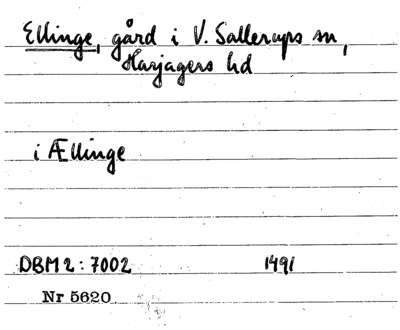 Ellinge, gård i V. Sallerups sn,
Harjagers hd
i Ællinge
DBM 2: 7002 1491
Nr 5620